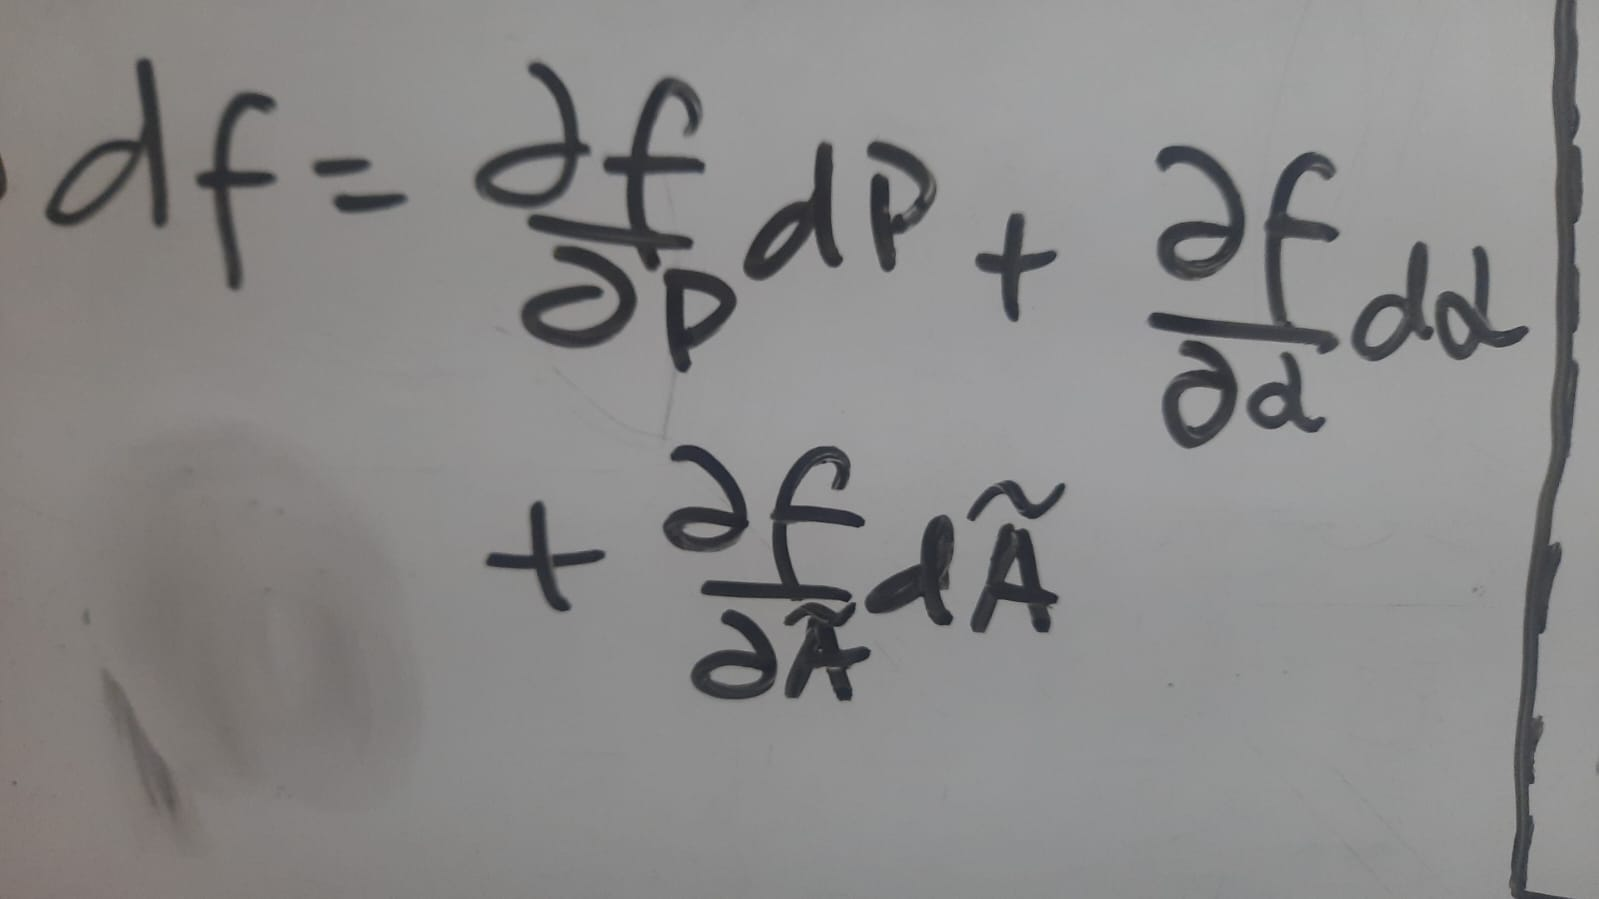 df = ∂f/∂p dP + ∂f/∂α dα
+ ∂f/∂Ã dÃ